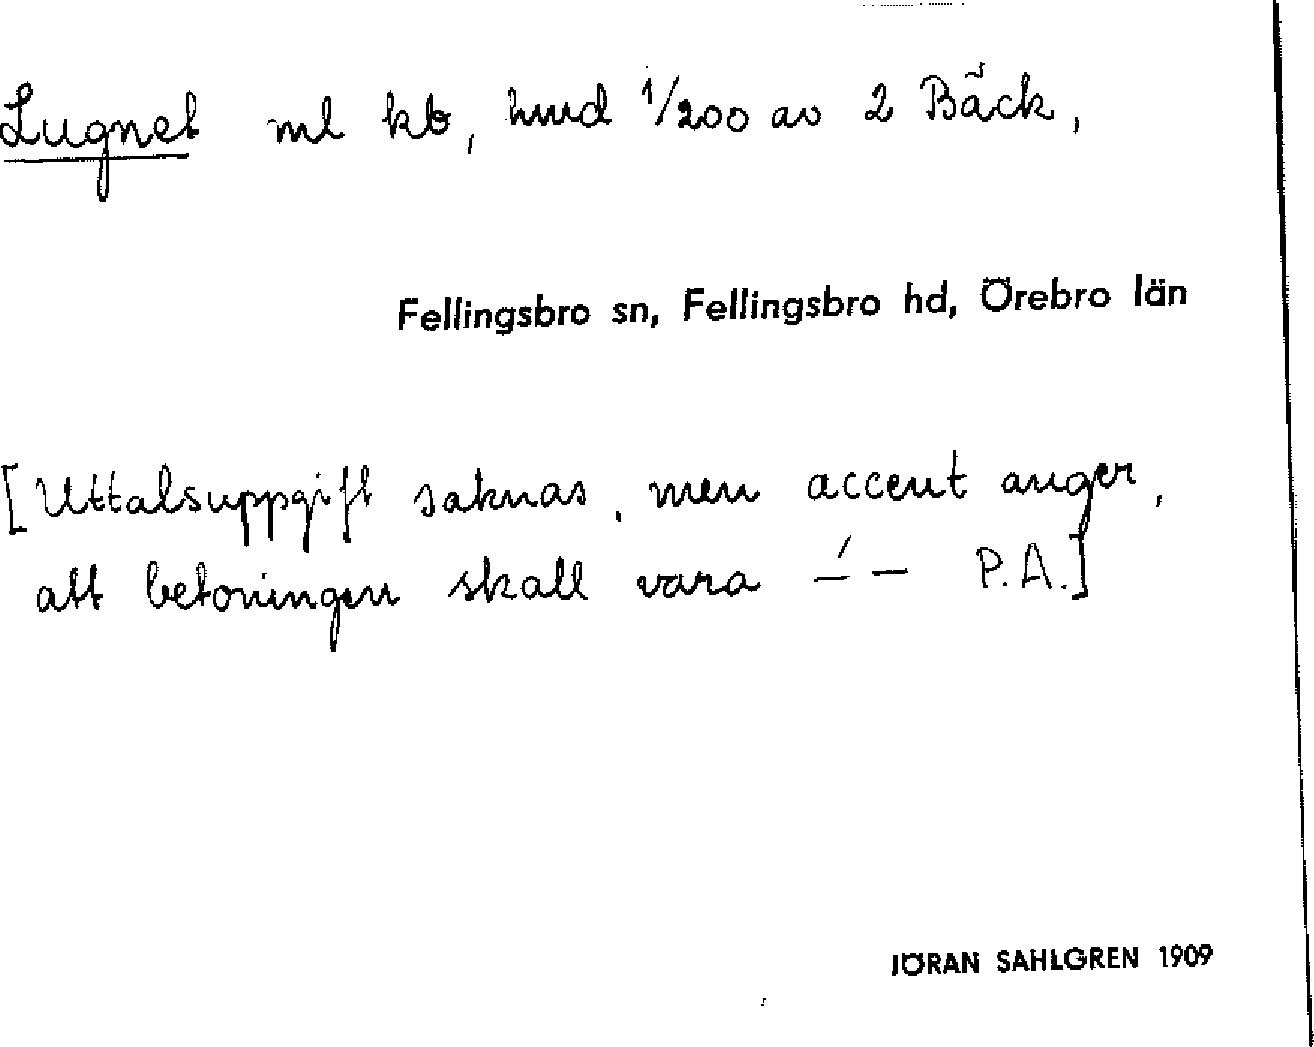 Lugnet ml kb, hmd 1/200 av 2 Bäck,
Fellingsbro sn, Fellingsbro hd, Örebro län
[Uttalsuppgift saknas, men accent anger,
att betoningen skall vara –́ – P.A.]
JÖRAN SAHLGREN 1909